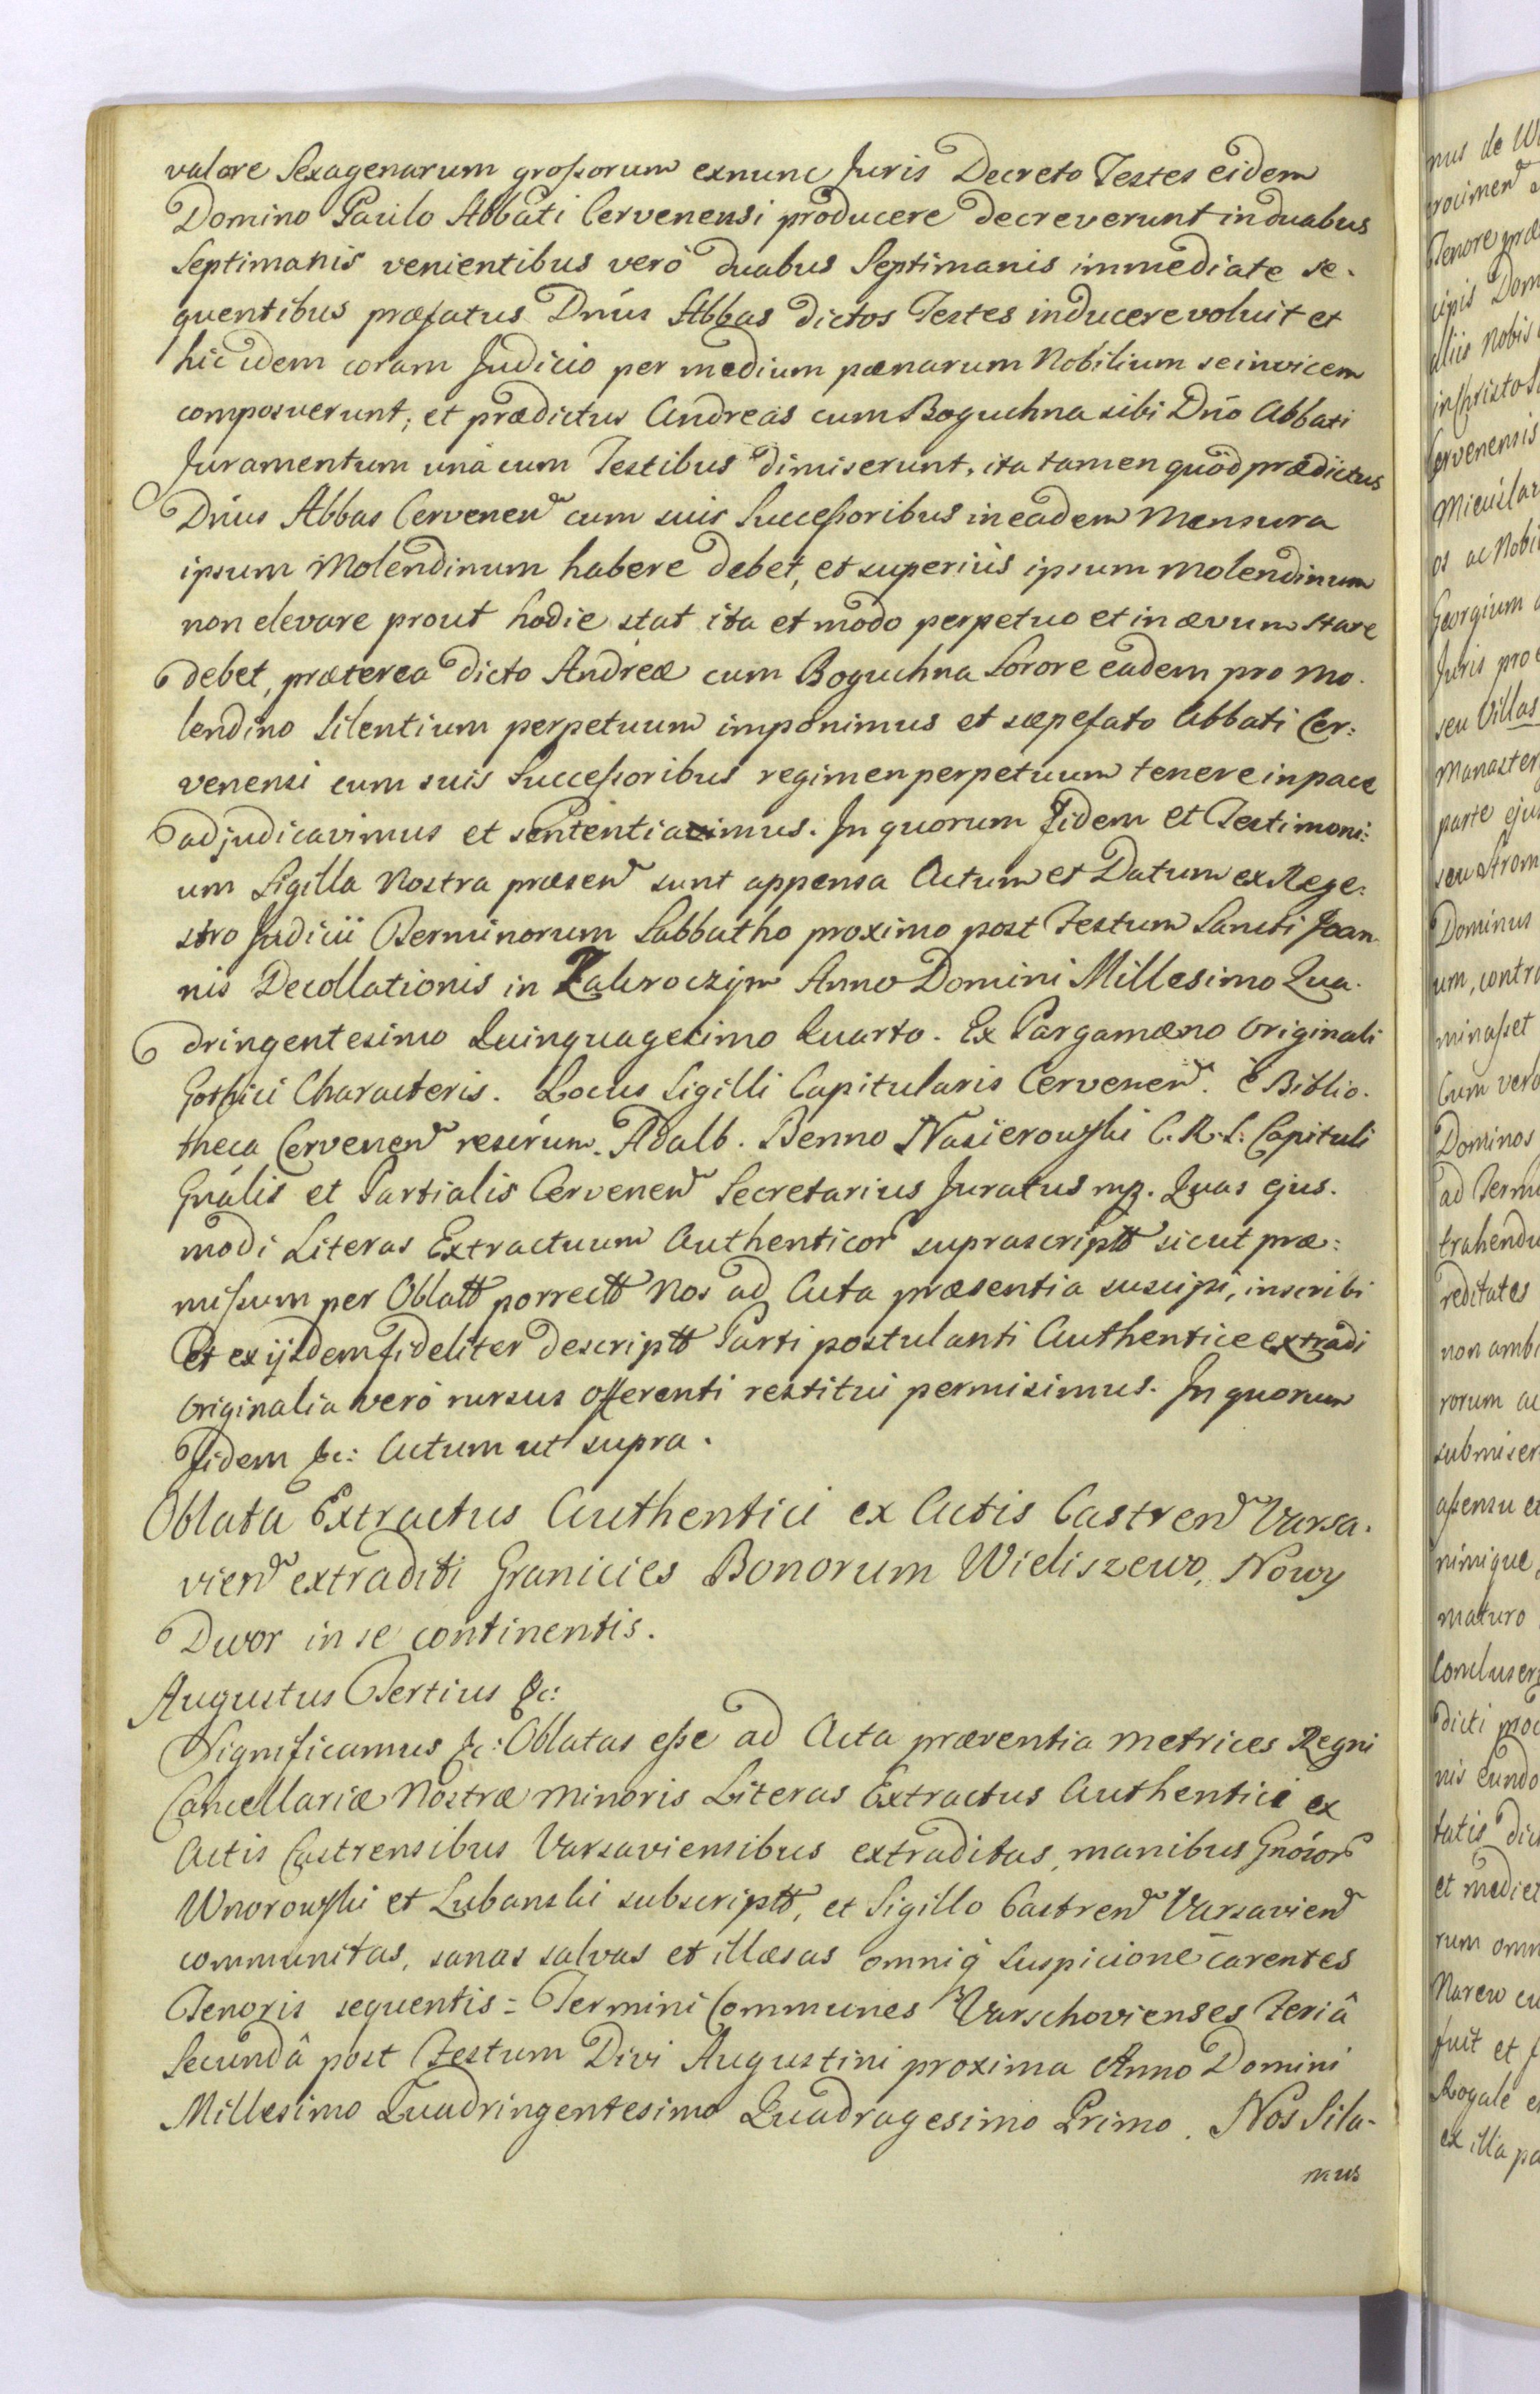 valore Sexagenarum großorum exnunc Juris Decreto Testes eidem
Domino Paulo Abbati Cervenensi producere decreverunt in duabus
Septimanis venientibus verò duabus Septimanis immediate se-
quentibus præfatus Dnús Abbas dictos Testes inducere voluit et
hic idem coram Judicio per medium pænarum Nobilium se invicem
composuerunt; et prædictus Andreas cum Boguchna sibi Dnó Abbati
Juramentum unà cum Testibus dimiserunt, ita tamen quòd prædictus
Dnús Abbas Cervenen cum suis Succeßoribus in eadem Mensura
ipsum Molendinum habere debet, et superiùs ipsum molendinum
non elevare prout hodie stat ita et modo perpetuo et in ævum stare
debet, præterea dicto Andreæ cum Boguchna Sorore eadem pro mo-
lendino Silentium perpetuum imponimus et sæpefato Abbati Cer:
venensi cum suis Succeßoribus regimen perpetuum tenere in pace
adjudicavimus et sententiavimus. In quorum Fidem et Testimoni:
um Sigilla Nostra præsen sunt appensa Actum et Datum ex Rege:
stro Judicii Terminorum Sabbatho proximo post Festum Sancti Joan-
nis Decollationis in Zakroczym Anno Domini Millesimo Qua-
dringentesimo Quinquagesimo Quarto. Ex Pargamæno Originali
Gothici Characteris. Locus Sigilli Capitularis Cervenen. è Biblio-
theca Cervenen reserúm. Adalb. Benno Nasierowski C. R. L. Capituli
Gnális et Partialis Cervenen Secretarius Juratus mp. Quas ejus-
modi Literas Extractuum Authenticor suprascriptt sicut præ:
mißum per Oblatt porrectt Nos ad Acta præsentia suscipi, inscribi
Et ex ijsdem fideliter descriptt Parti postulanti Authentice extradi
Originalia verò rursus offerenti restitui permisimus. In quorum
Fidem &c: Actum ut supra.
Oblata Extractus Authentici ex Actis Castren Varsa-
vien extraditi Granicies Bonorum Wieliszewo, Nowy
Dwor in se continentis.
Augustus Tertius &c:
Significamus &c: Oblatas eße ad Acta præsentia Metrices Regni
Cancellariæ Nostræ Minoris Literas Extractus Authentici ex
Actis Castrensibus Varsaviensibus extraditas, manibus Gnósor
Wnorowski et Lubanski subscriptt, et Sigillo Castren Varsavien
communitas, sanas salvas et illæsas omniq̃ Suspicione carentes
Tenoris sequentis = Termini Communes Varschovienses Feriâ
Secundâ post Festum Divi Augustini proxima Anno Domini
Millesimo Quadringentesimo Quadragesimo Primo. Nos Sila-
mus